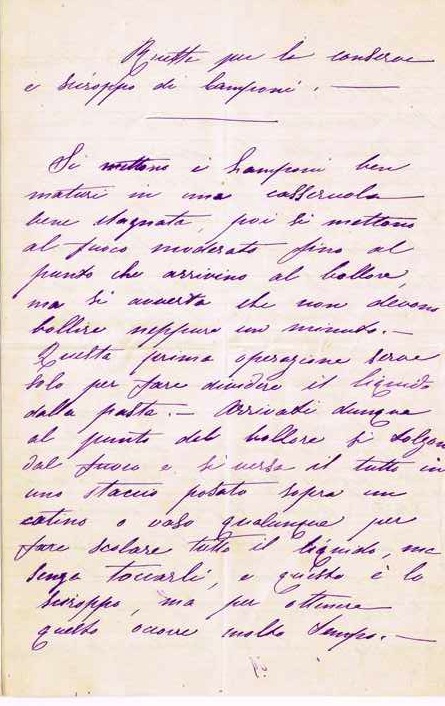 Ricetta per la conserva
e siroppo di lamponi. —
Si mettono i lamponi ben
maturi in una casseruola
bene stagnata, poi si mettono
al fuoco moderato fino al
punto che arrivino al bollore,
ma si avverta che non devono
bollire neppure un minuto. —
Questa prima operazione serve
solo per fare dividere il liquido
dalla pasta. — Arrivati dunque
al punto del bollore si tolgon
dal fuoco e si versa il tutto in
uno staccio posato sopra un
catino o vaso qualunque per
fare scolare tutto il liquido, ma
senza toccarli, e questo è lo
siroppo, ma per ottenere
questo occorre molto tempo. —